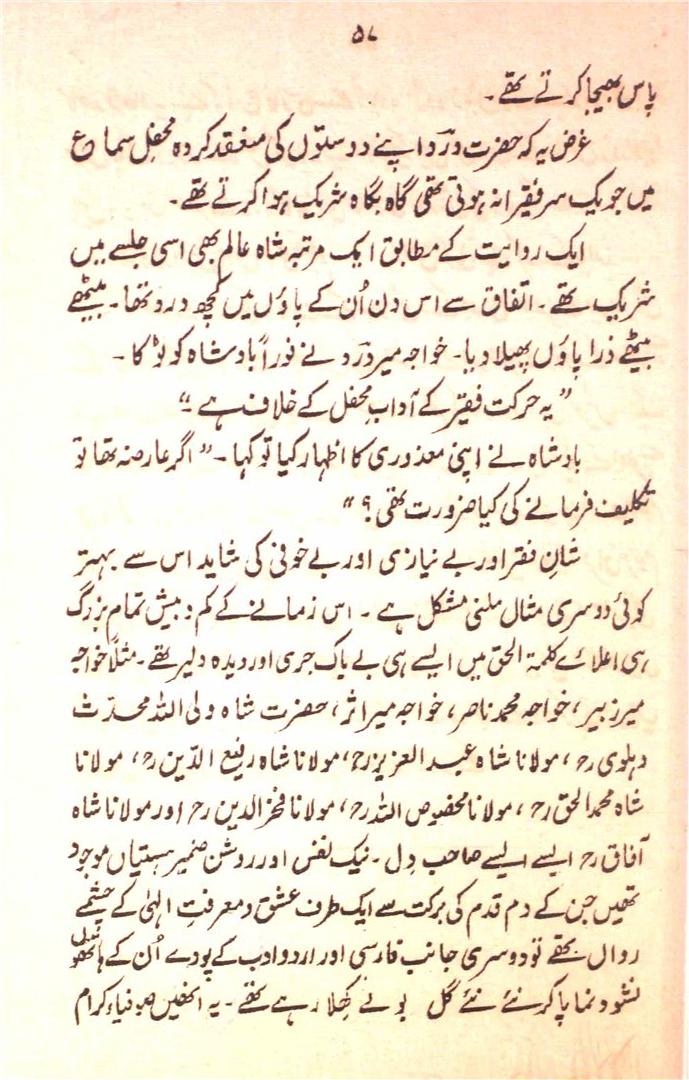 ۵۷
پاس بھیجا کرتے تھے۔
غرض یہ کہ حضرت درؔد اپنے دوستوں کی منعقد کردہ محفل سماع
میں جو یک سر فقیرانہ ہوتی تھی گاہ بگاہ شریک ہوا کرتے تھے۔
ایک روایت کے مطابق ایک مرتبہ شاہ عالم بھی اسی جلسے میں
شریک تھے۔ اتفاق سے اس دن اُن کے پاؤں میں کچھ درد تھا۔ بیٹھے
بیٹھے ذرا پاؤں پھیلا دیا۔ خواجہ میر درؔد نے فوراً بادشاہ کو ٹوکا۔
”یہ حرکت فقیر کے آدابِ محفل کے خلاف ہے“
بادشاہ نے اپنی معذوری کا اظہار کیا تو کہا۔ ”اگر عارضہ تھا تو
تکلیف فرمانے کی کیا ضرورت تھی؟“
شانِ فقر اور بے نیازی اور بے خوفی کی شاید اس سے بہتر
کوئی دوسری مثال ملنی مشکل ہے۔ اس زمانے کے کم و بیش تمام بزرگ
ہی اعلائے کلمۃ الحق میں ایسے ہی بے باک جری اور دیدہ دلیر تھے۔ مثلاً خواجہ
میر زبیر، خواجہ محمد ناصر، خواجہ میر اثر، حضرت شاہ ولی اللہ محدّث
دہلوی رح، مولانا شاہ عبد العزیز رح، مولانا شاہ رفیع الدّین رح، مولانا
شاہ محمد الحق رح، مولانا مخصوص اللہ رح، مولانا فخر الدین رح اور مولانا شاہ
آفاق رح ایسے ایسے صاحب دِل۔ نیک نفس اور روشن ضمیر ہستیاں موجود
تھیں جن کے دم قدم کی برکت سے ایک طرف عشق و معرفتِ الہٰی کے چشمے
رواں تھے تو دوسری جانب فارسی اور اردو ادب کے پودے اُن کے ہاتھوں
نشو و نما پا کر نئے نئے گل بوٹے کِھلا رہے تھے۔ یہ انھیں صوفیاء کرام